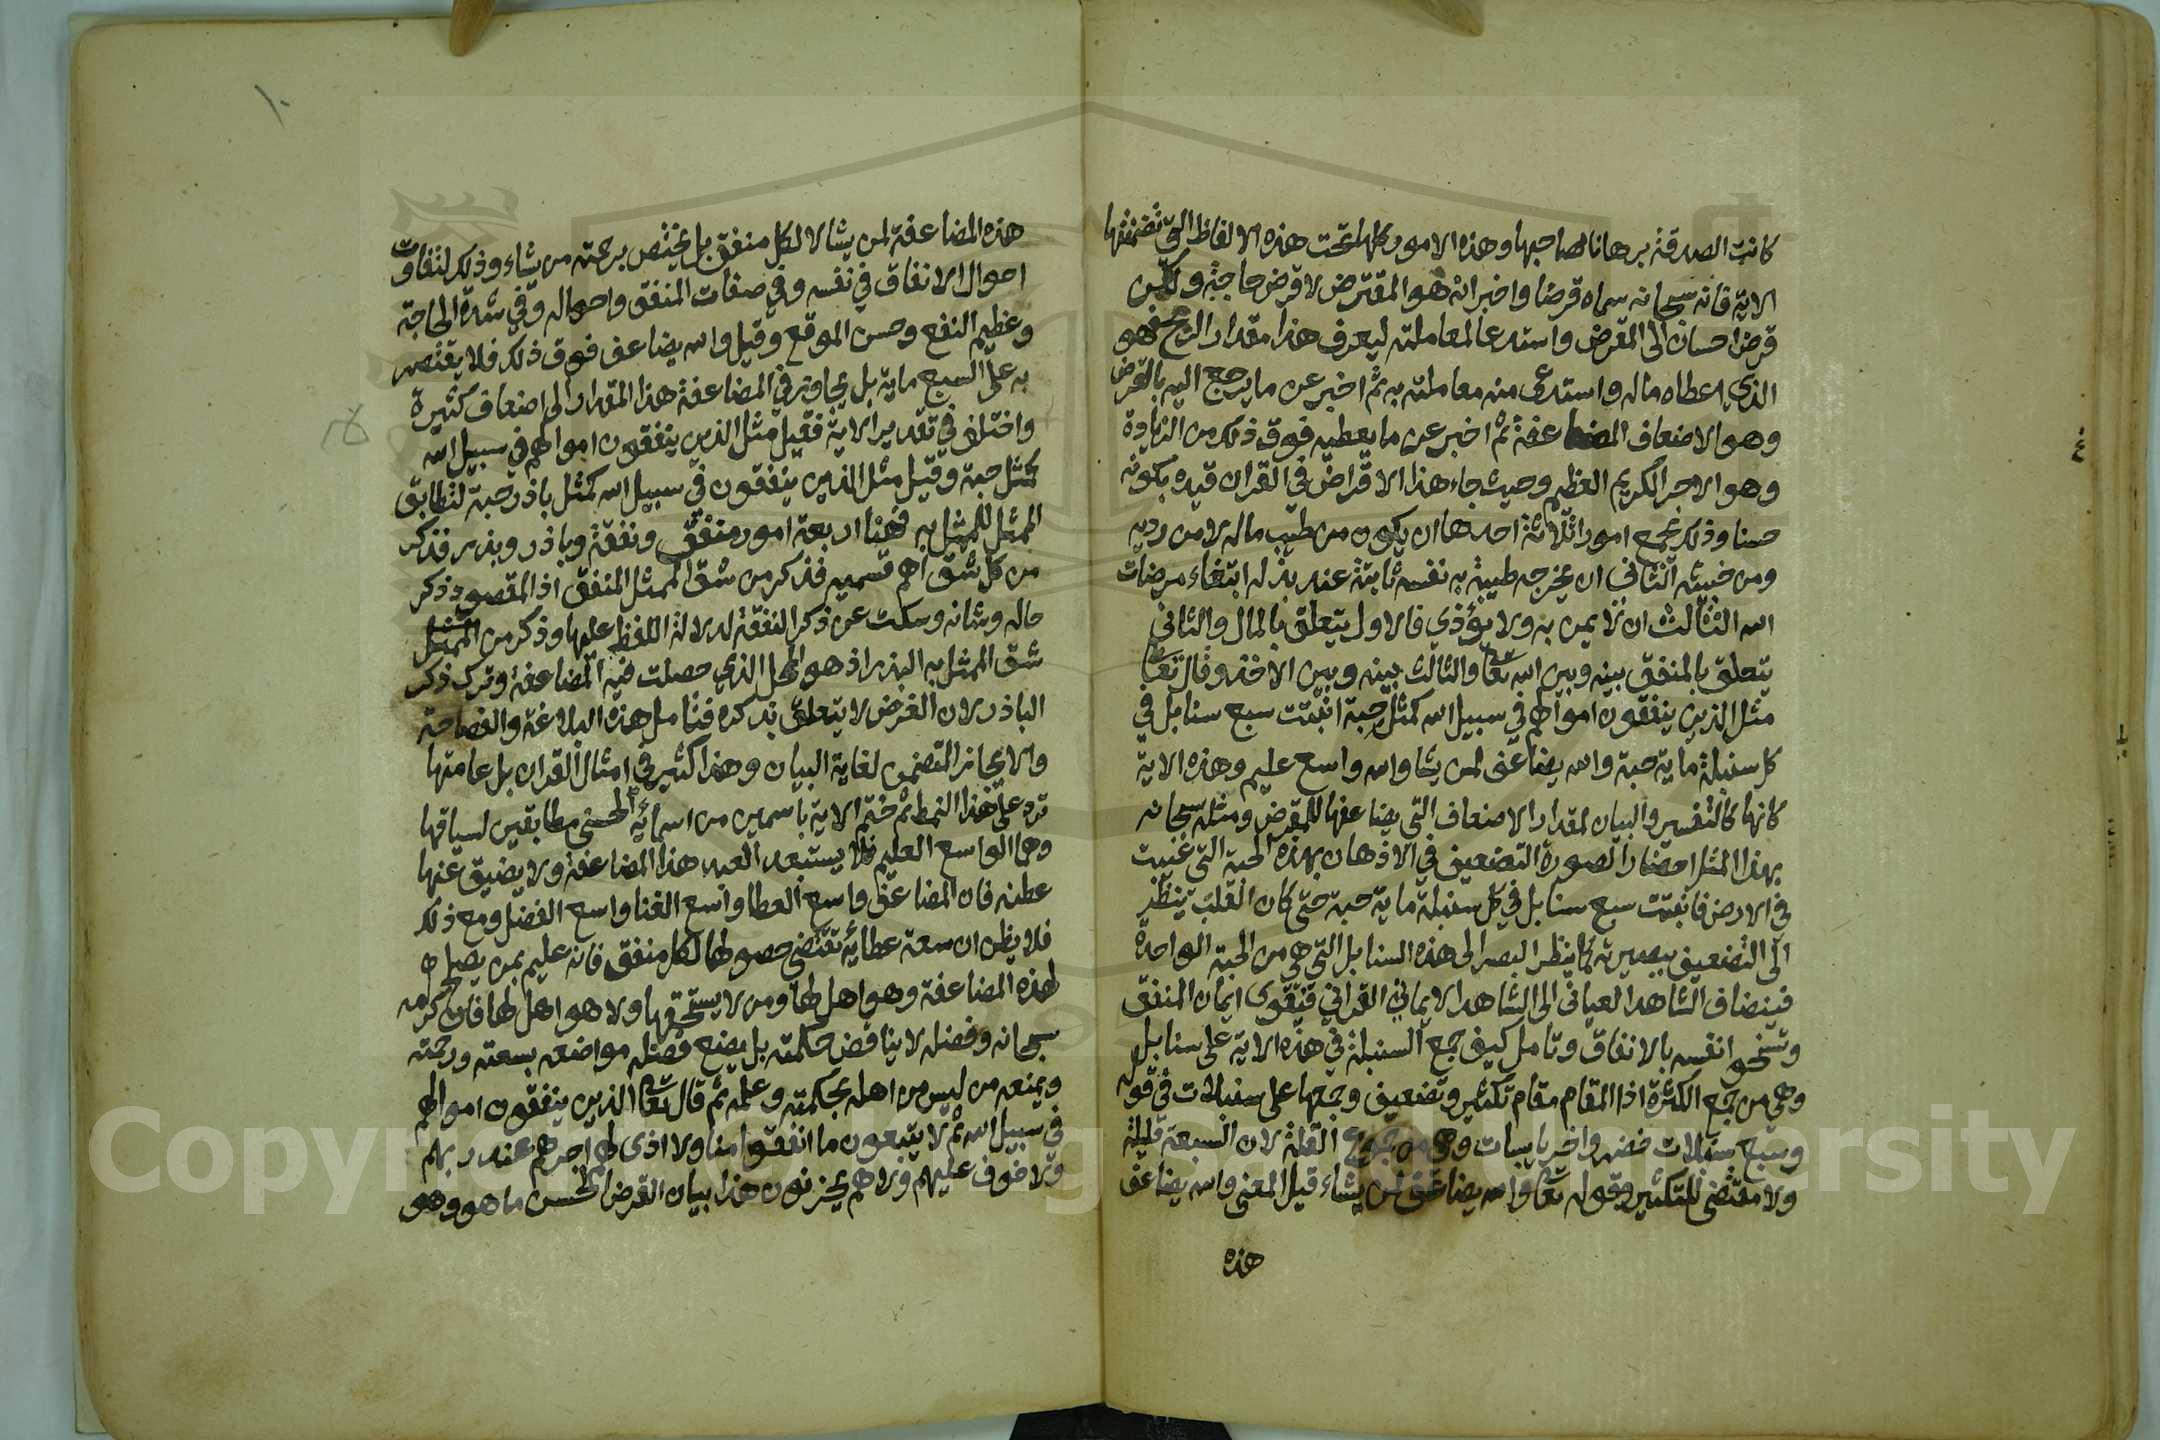 كانت الصدقة برهانا لصاحبها وهذه الامور كلها تحت هذه الالفاظ التي تضمنتها
الاية فانه سبحانه سماه قرضا واخبر انه هو المقترض لا قرض حاجة ولكن
قرض احسان الى المقرض واستدعا لمعاملته ليعرف هذا مقدار الربح فهو
الذي اعطاه ماله واستدعى منه معاملته به ثم اخبر عن ما يرجع اليه بالقرض
وهو الاضعاف المضاعفة ثم اخبر عن ما يعطيه فوق ذلك من الزيادة
وهو الاجر الكريم العظيم وحيث جاء هذا الاقراض في القران قيده بكونه
حسنا وذلك يجمع امورا ثلاثة احدها ان يكون من طيب ماله لا من رديه
ومن خبيثه الثاني ان يخرجه طيبة به نفسه ثابتة عند بذله ابتغاء مرضات
الله الثالث ان لا يمن به ولا يؤذي فالاول يتعلق بالمال والثاني
يتعلق بالمنفق بينه وبين الله تعا والثالث بينه وبين الاخذ وقال تعا
مثل الذين ينفقون اموالهم في سبيل الله كمثل حبة انبتت سبع سنابل في
كل سنبلة ماية حبة والله يضاعف لمن يشا والله واسع عليم وهذه الاية
كانها كالتفسير والبيان لمقدار الاضعاف التي يضاعفها للمقرض ومثله سبحانه
بهذا المثل احضارا لصورة التضعيف في الاذهان بهذه الحبة التي غيبت
في الارض فانبتت سبع سنابل في كل سنبلة ماية حبة حتى كان القلب ينظر
الى التضعيف ببصيرته كما ينظر البصر الى هذه السنابل التي هي من الحبة الواحدة
فينضاف الشاهد العياني الى الشاهد الايماني القراني فتقوى ايمان المنفق
وتسخو نفسه بالانفاق وتامل كيف جمع السنبلة في هذه الاية على سنابل
وهي من جمع الكثرة اذ المقام مقام تكثير وتضعيف وجمعها على سنبلات في قوله
وسبع سنبلات خضر واخر يابسات وهو من جموع القلة لان السبعة قليلة
ولا مقتضى للتكثير وقوله تعا والله يضاعف لمن يشاء قيل المعنى والله يضاعف
هذه
هذه المضاعفة لمن يشا لا لكل منفق بل يختص برحمته من يشاء وذلك لتفاوت
احوال الانفاق في نفسه وفي صفات المنفق واحواله وفي شدة الحاجة
وعظيم النفع وحسن الموقع وقيل والله يضاعف فوق ذلك فلا يقتصر
به على السبع ماية بل يجاوز في المضاعفة هذا المقدار الى اضعاف كثيرة
واختلف في تقدير الاية فقيل مثل الذين ينفقون اموالهم في سبيل الله
كمثل حبة وقيل مثل الذين ينفقون في سبيل الله كمثل باذر حبة لتطابق
الممثل للممثل به فهنا اربعة امور منفق ونفقة وباذر وبذر فذكر
من كل شق اهم قسميه فذكر من شق الممثل المنفق اذ المقصود ذكر
حاله وشانه وسكت عن ذكر النفقة لدلالة اللفظ عليها وذكر من
شق الممثل به البذر اذ هو المحل الذي حصلت فيه المضاعفة وترك ذكر
الباذر لان الغرض لا يتعلق بذكره فتامل هذه البلاغة والفصاحة
والايجاز المتضمن لغاية البيان وهذا كثير في امثال القران بل عامتها
ترد على هذا النمط ثم ختم الاية باسمين من اسمائه الحسنى مطابقين لسياقها
وهما الواسع العليم فلا يستبعد العبد هذا المضاعفة ولا يضيق عنها
عطنه فان المضاعف واسع العطا واسع الغنا واسع الفضل ومع ذلك
فلا يظن ان سعة عطائه تقتضي حصولها لكل منفق فانه عليم بمن يصلح
لهذه المضاعفة وهو اهل لها ومن لا يستحقها ولا هو اهل لها فان كرمه
سبحانه وفضله لا يناقض حكمته بل يضع فضله مواضعه بسعته ورحمته
ويمنعه من ليس من اهله بحكمته وعلمه ثم قال تعا الذين ينفقون اموالهم
في سبيل الله ثم لا يتبعون ما انفقوا منا ولا اذى لهم اجرهم عند ربهم
ولا خوف عليهم ولا هم يحزنون هذا بيان القرض الحسن ما هو وهو
١٠
Copyright © King Saud University